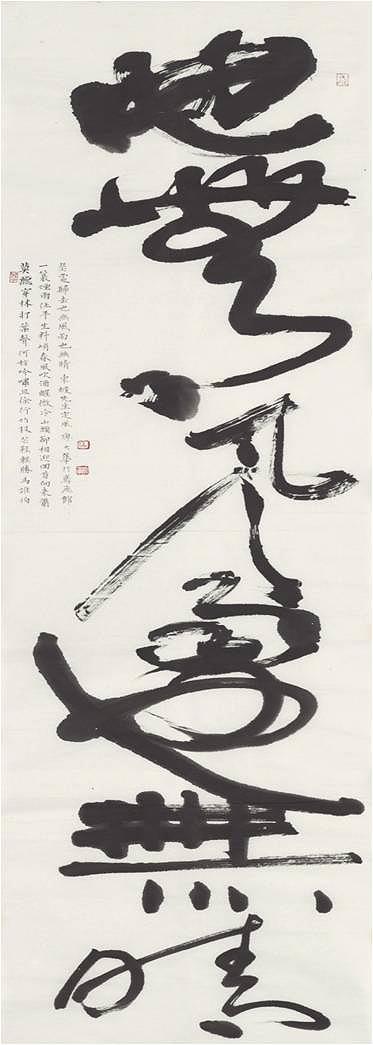 也無風雨也無晴
莫聽穿林打葉聲何妨吟嘯且徐行竹杖芒鞋輕勝馬誰怕
一蓑煙雨任平生料峭春風吹酒醒微冷山頭卻相迎回首向來蕭
瑟處歸去也無風雨也無晴 東坡先生定風